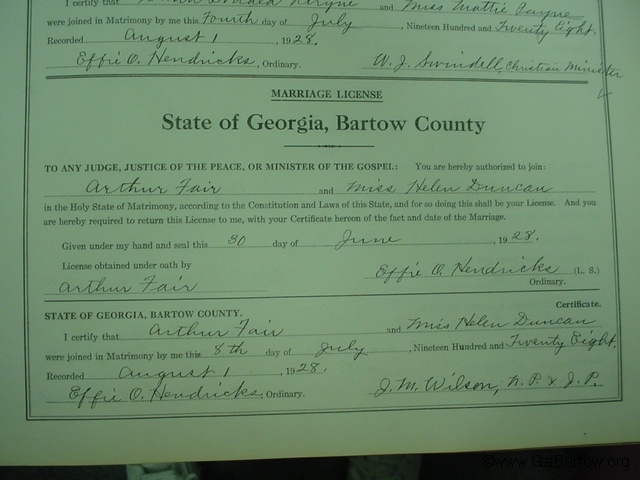 I certify that and Miss Mattie Payne
were joined in Matrimony by me this Fourth day of July, Nineteen Hundred and Twenty Eight.
Recorded August 1, 1928.
Effie O. Hendricks, Ordinary. W. J. Swindell, Christian Minister
MARRIAGE LICENSE
State of Georgia, Bartow County
TO ANY JUDGE, JUSTICE OF THE PEACE, OR MINISTER OF THE GOSPEL: You are hereby authorized to join:
Arthur Fair and Miss Helen Duncan
in the Holy State of Matrimony, according to the Constitution and Laws of this State, and for so doing this shall be your License. And you
are hereby required to return this License to me, with your Certificate hereon of the fact and date of the Marriage.
Given under my hand and seal this 30 day of June, 1928.
License obtained under oath by Effie O. Hendricks (L. S.)
Arthur Fair Ordinary.
STATE OF GEORGIA, BARTOW COUNTY. Certificate.
I certify that Arthur Fair and Miss Helen Duncan
were joined in Matrimony by me this 8th day of July, Nineteen Hundred and Twenty Eight.
Recorded August 1, 1928.
Effie O. Hendricks, Ordinary. J. M. Wilson, N. P. & J. P.
©www.GaBartow.org